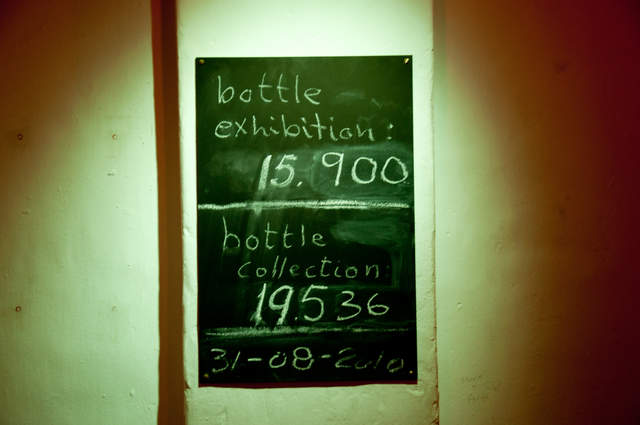 bottle
exhibition:
15.900
bottle
collection:
19.536
31-08-2010.